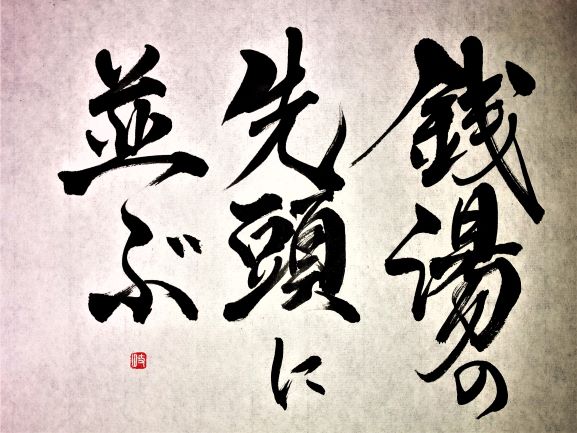 銭湯の
先頭に
並ぶ